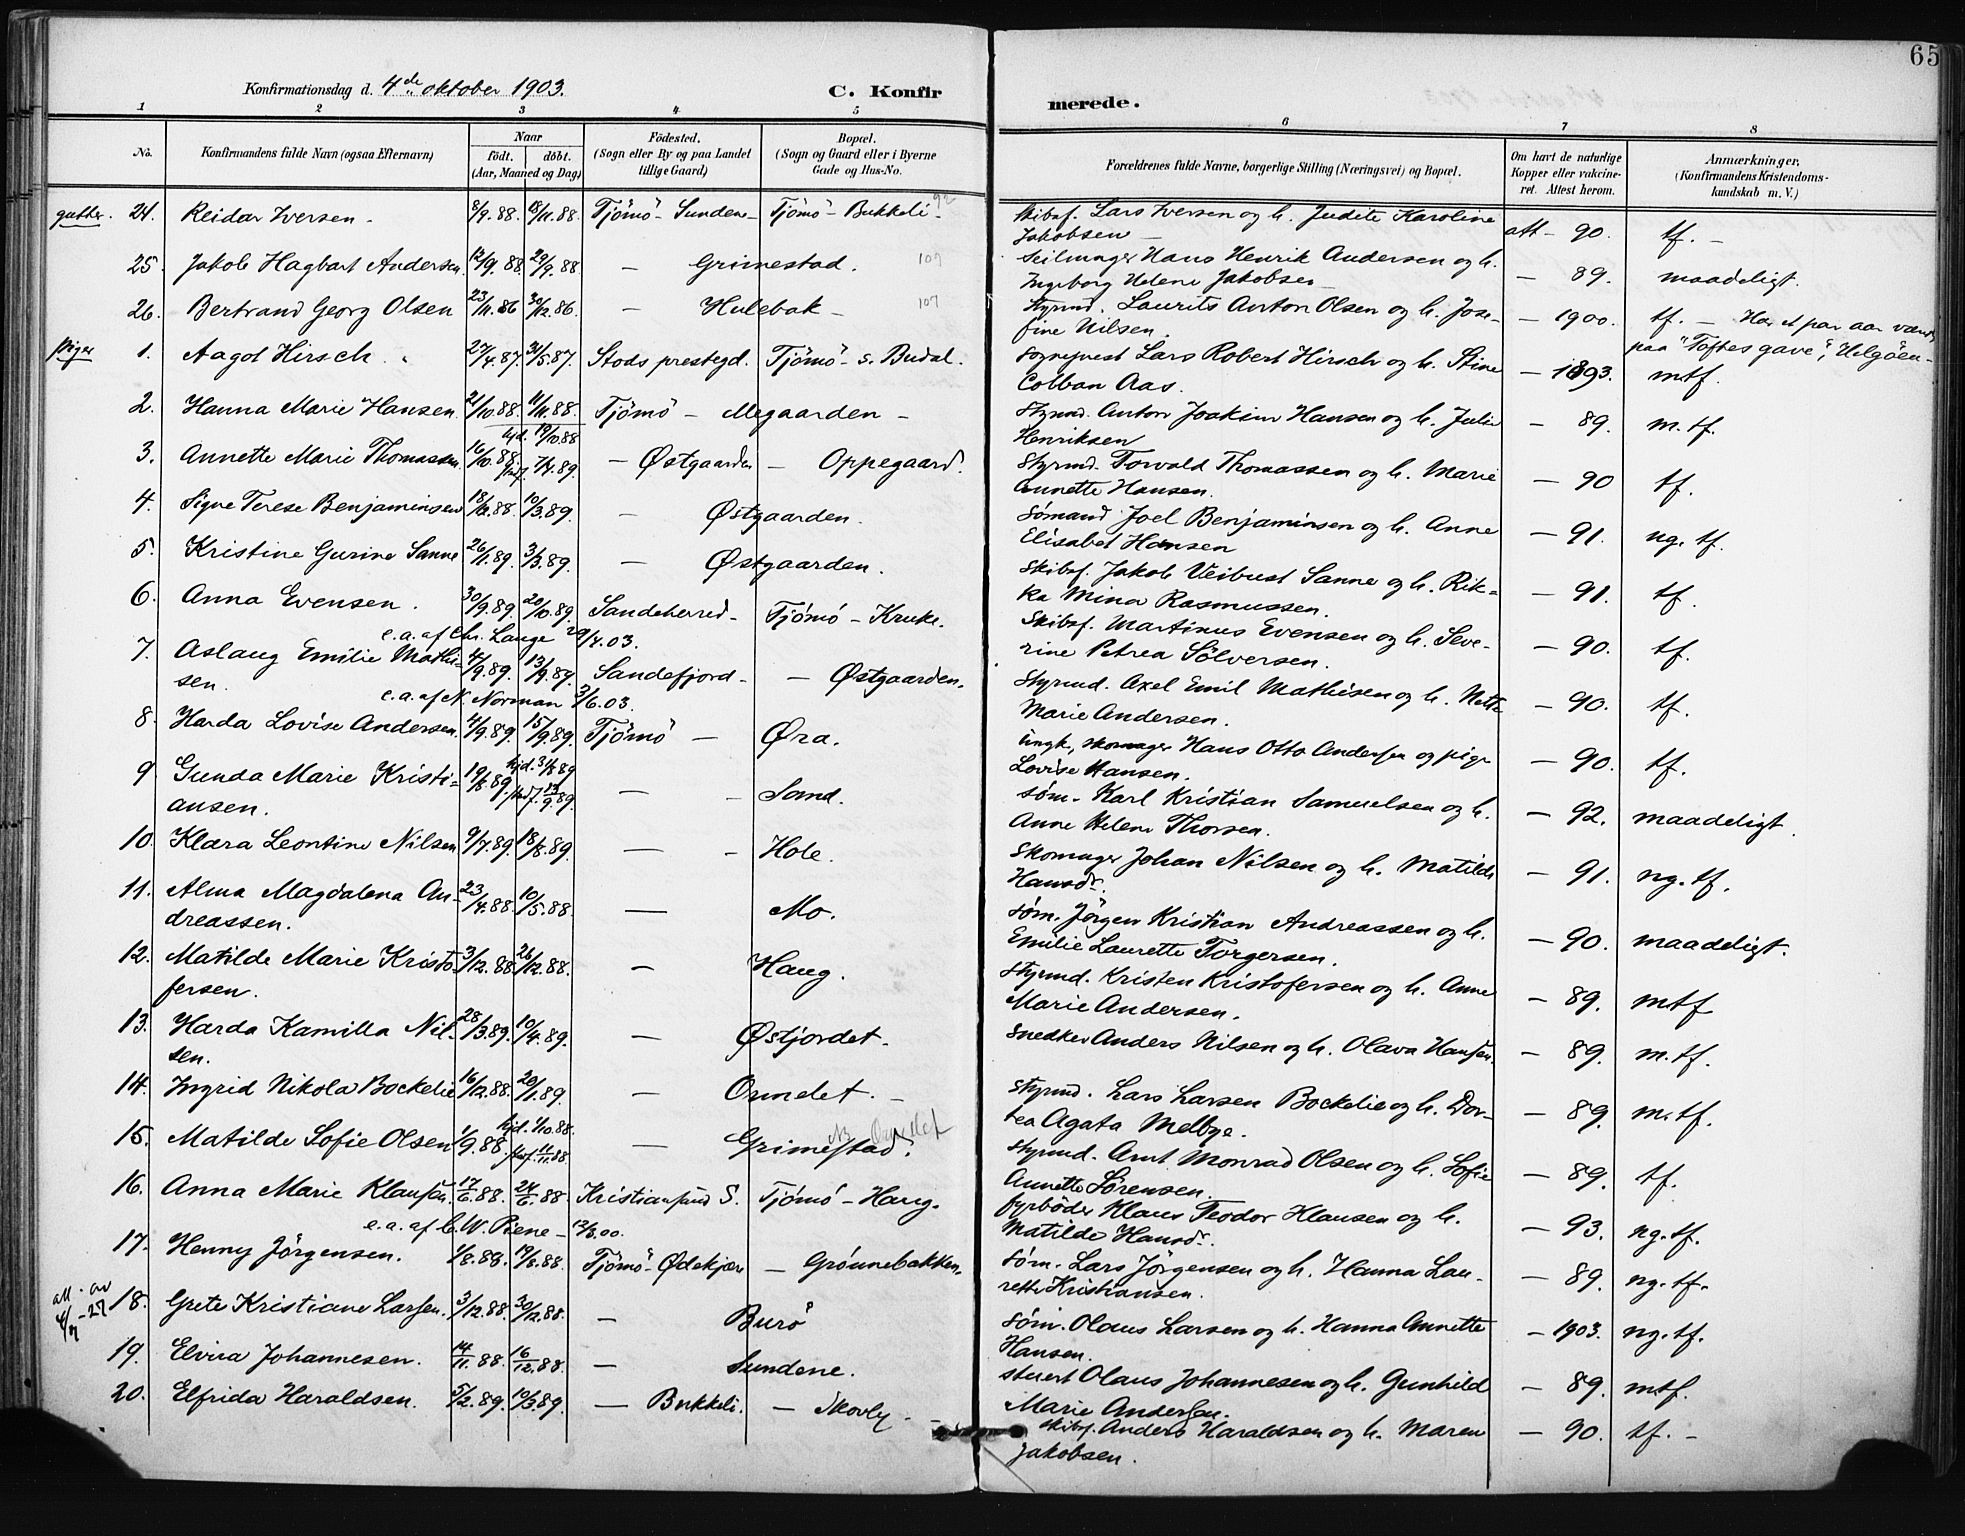 65
Konfirmationsdag d. 4de oktober 1903. C. Konfir
merede.
1 2 3 4 5 6 7 8
No. Konfirmandens fulde Navn (ogsaa Efternavn) Naar Födested. Bopæl. Forældrenes fulde Navne, borgerlige Stilling (Næringsvei) og Bopæl. Om havt de naturlige Anmærkninger.
født. døbt. (Sogn eller By og paa Landet (Sogn og Gaard eller i Byerne Kopper eller vakcine- (Konfirmandens Kristendoms-
(Aar, Maaned og Dag) tillige Gaard) Gade og Hus-No. ret. Attest herom. kundskab m. V.)
gutter. 24. Reidar Iversen - 8/9. 88. 18/11. 88. Tjömö - Sundene - Tjömö - Bukkeli - 92 skibsf. Lars Iversen og h. Judite Karoline
Jakobsen - att - 90. tf. -
25. Jakob Hagbart Andersen. 12/9. 88. 29/9. 88. - Grimestad. 109 Seilmager Hans Henrik Andersen og h.
Ingeborg Helene Jakobsen - - 89. maadeligt.
26. Bertrand Georg Olsen 23/11. 86 30/12. 86. - Hulebak - 107 styrmd. Laurits Anton Olsen og h. Jose-
fine Nilsen. - 1900. tf. - Har et par aar været
paa "Toftes gave", Helgöen -
piger 1. Aagot Hirsch. 27/4. 87. 31/5. 87. Stods prestegd. Tjömö - s. Budal. sogneprest Lars Robert Hirsch og h. Stine
Colban Aas. - 1893. mtf.
2. Hanna Marie Hansen. 21/10. 88. 11/11. 88. Tjömö - Megaarden - styrmd. Anton Joakim Hansen og h. Julie
Henriksen - 89. m. tf.
hjd. 19/10 88
3. Annette Marie Thomassen. 16/10. 88. 7/4. 89. - Østgaarden - Oppegaard. styrmd. Torvald Thomassen og h. Marie
Annette Hansen. - 90 tf.
4. Signe Terese Benjaminsen 18/12. 88. 10/3. 89. - Østgaarden. sømand Joel Benjaminsen og h. Anne
Elisabet Hansen - 91. ng. tf.
5. Kristine Gurine Sanne 26/1. 89. 3/3. 89. - Østgaarden. skibsf. Jakob Veibust Sanne og h. Rik-
ka Mina Rasmussen. - 91. tf.
6. Anna Evensen. 30/9. 89. 20/10. 89. Sandeherred - Tjömö - Kruke. skibsf. Martinus Evensen og h. Seve-
rine Petrea Sölversen. - 90. tf.
e. a. af Chr. Lange 29/4. 03.
7. Aslaug Emilie Mathi-
sen. 4/9. 89. 13/9. 89. Sandefjord - - Østgaarden. styrmd. Axel Emil Mathisen og h. Nette
Marie Andersen. - 90. tf.
e. a. af N. Norman 3/6. 03.
8. Harda Lovise Andersen. 4/9. 89. 15/9. 89. Tjömö - Øra. ungk, skomager Hans Otto Andersen og pige
Lovise Hansen. - 90. tf.
9. Gunda Marie Kristi-
ansen. 19/8. 89. hjd. 31/8 89 - - Sand. søm. Karl Kristian Samuelsen og h.
Anne Helene Thorsen. - 92. maadeligt.
10. Klara Leontine Nilsen 9/7. 89. 18/8. 89. - - Hole. skomager Johan Nilsen og h. Matilde
Hansdr. - 91. ng. tf.
11. Alma Magdalena An-
dreassen. 23/4. 88. 10/5. 88. - Mo. søm. Jörgen Kristian Andreassen og h.
Emilie Laurette Torgersen. - 90. maadeligt.
12. Matilde Marie Kristo-
fersen. 3/12. 88. 26/12. 88. - Haug. styrmd. Kristen Kristofersen og h. Anne
Marie Andersen. - 89. mtf
13. Harda Kamilla Nil-
sen. 28/3. 89. 10/4. 89. - Østjordet. snedker Anders Nilsen og h. Olava Hansen. - 89. m. tf.
14. Ingrid Nikola Bockelie 16/12. 88. 20/1. 89. - Ormelet. - styrmd. Lars Larsen Bockelie og h. Dor-
tea Agata Melbye. - 89. m. tf.
15. Matilde Sofie Olsen 1/9. 88. hjd. 1/10. 88. - Grimestad. Ormelet styrmd. Arnt Monrad Olsen og h. Sofie
Annette Sörensen. - 89. tf.
16. Anna Marie Klausen. 17/6. 88. 24/6. 88 Kristiansund S. Tjömö - Haug. fyrböder Klaus Teodor Klausen og h.
Matilde Hansdr. - 93. ng. tf.
e. a. af C. W. Piene - 12/3. 00.
17. Henny Jörgensen. 1/8. 88. 19/8. 88. Tjömö - Ødekjær - Grönnebakken. søm. Lars Jörgensen og h. Hanna Lau-
rette Kristiansen. - 89. ng. tf.
18. Grete Kristiane Larsen. 3/12. 88. 30/12. 88. - Burö søm. Olaus Larsen og h. Hanna Annette
Hansen. - 1903. ng. tf.
19. Elvira Johannesen. 14/11. 88. 16/12. 88. - Sundene. stuert Olaus Johannesen og h. Gunhild
Marie Andersen. - 89. mtf.
20. Elfrida Haraldsen. 5/2. 89. 10/3. 89. - Bukkeli. - Skovly - skibsf. Anders Haraldsen og h. Maren
Jakobsen. - 90. tf. -